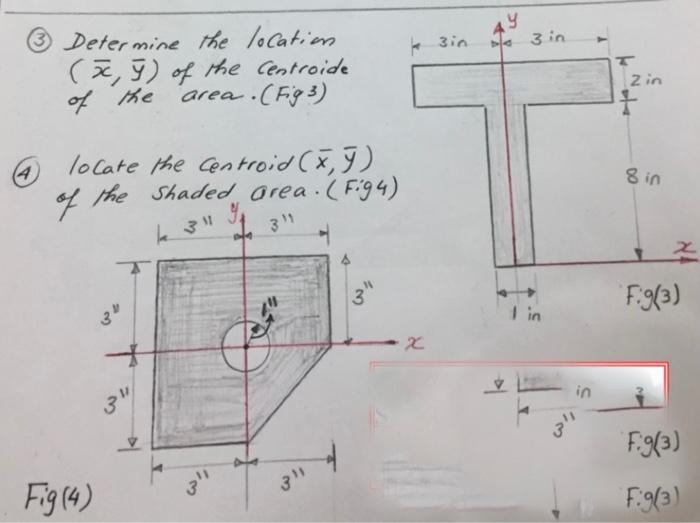 ③ Determine the location
(x̄, ȳ) of the Centroide
of the area. (Fig 3)
y
3 in
3 in
2 in
8 in
x
1 in
Fig(3)
④ locate the Centroid (x̄, ȳ)
of the Shaded area. (Fig 4)
y
3"
3"
3"
3"
1"
x
3"
3"
3"
Fig(4)
in
3
3"
Fig(3)
Fig(3)